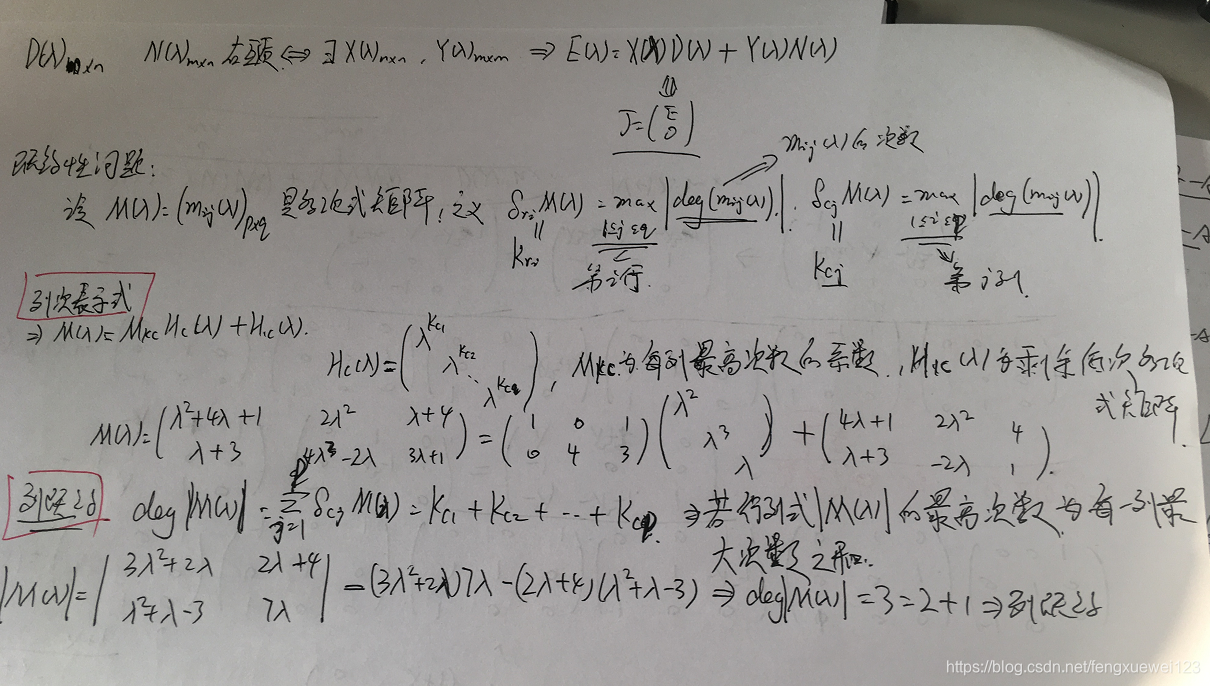 D(λ)m×n N(λ)m×n 右互质 ⇔ ∃ X(λ)n×n , Y(λ)m×m ⇒ E(λ)= X(λ)D(λ) + Y(λ)N(λ)
⇓
J=(E 0)
mij(λ)的次数
既约性问题:
设 M(λ)=(mij(λ))p×q 是多项式矩阵, 定义 δri M(λ) = max 1≤j≤q |deg(mij(λ))|. δcj M(λ) = max 1≤i≤p |deg(mij(λ))|.
= kri 第i行. = kcj 第j列.
列次表示式
⇒ M(λ)= Mkc Hc(λ) + Hlc(λ).
Hc(λ)=(λ^kc1 λ^kc2 ⋱ λ^kcq), Mkc为每列最高次数的系数, Hlc(λ)为剩余低次多项式矩阵.
M(λ)=(λ²+4λ+1 2λ² λ+4 ; λ+3 4λ³-2λ 3λ+1) = (1 0 1 ; 0 4 3)(λ² λ³ λ) + (4λ+1 2λ² 4 ; λ+3 -2λ 1).
列既约 deg|M(λ)| = Σ j=1 p δcj M(λ) = Kc1 + Kc2 + ⋯ + Kcp. ⇒ 若行列式|M(λ)|的最高次数为每一列最大次数之和.
|M(λ)|= |3λ²+2λ 2λ+4 ; λ²+λ-3 7λ| = (3λ²+2λ)7λ-(2λ+4)(λ²+λ-3) ⇒ deg|M(λ)| =3=2+1 ⇒列既约
https://blog.csdn.net/fengxuewei123